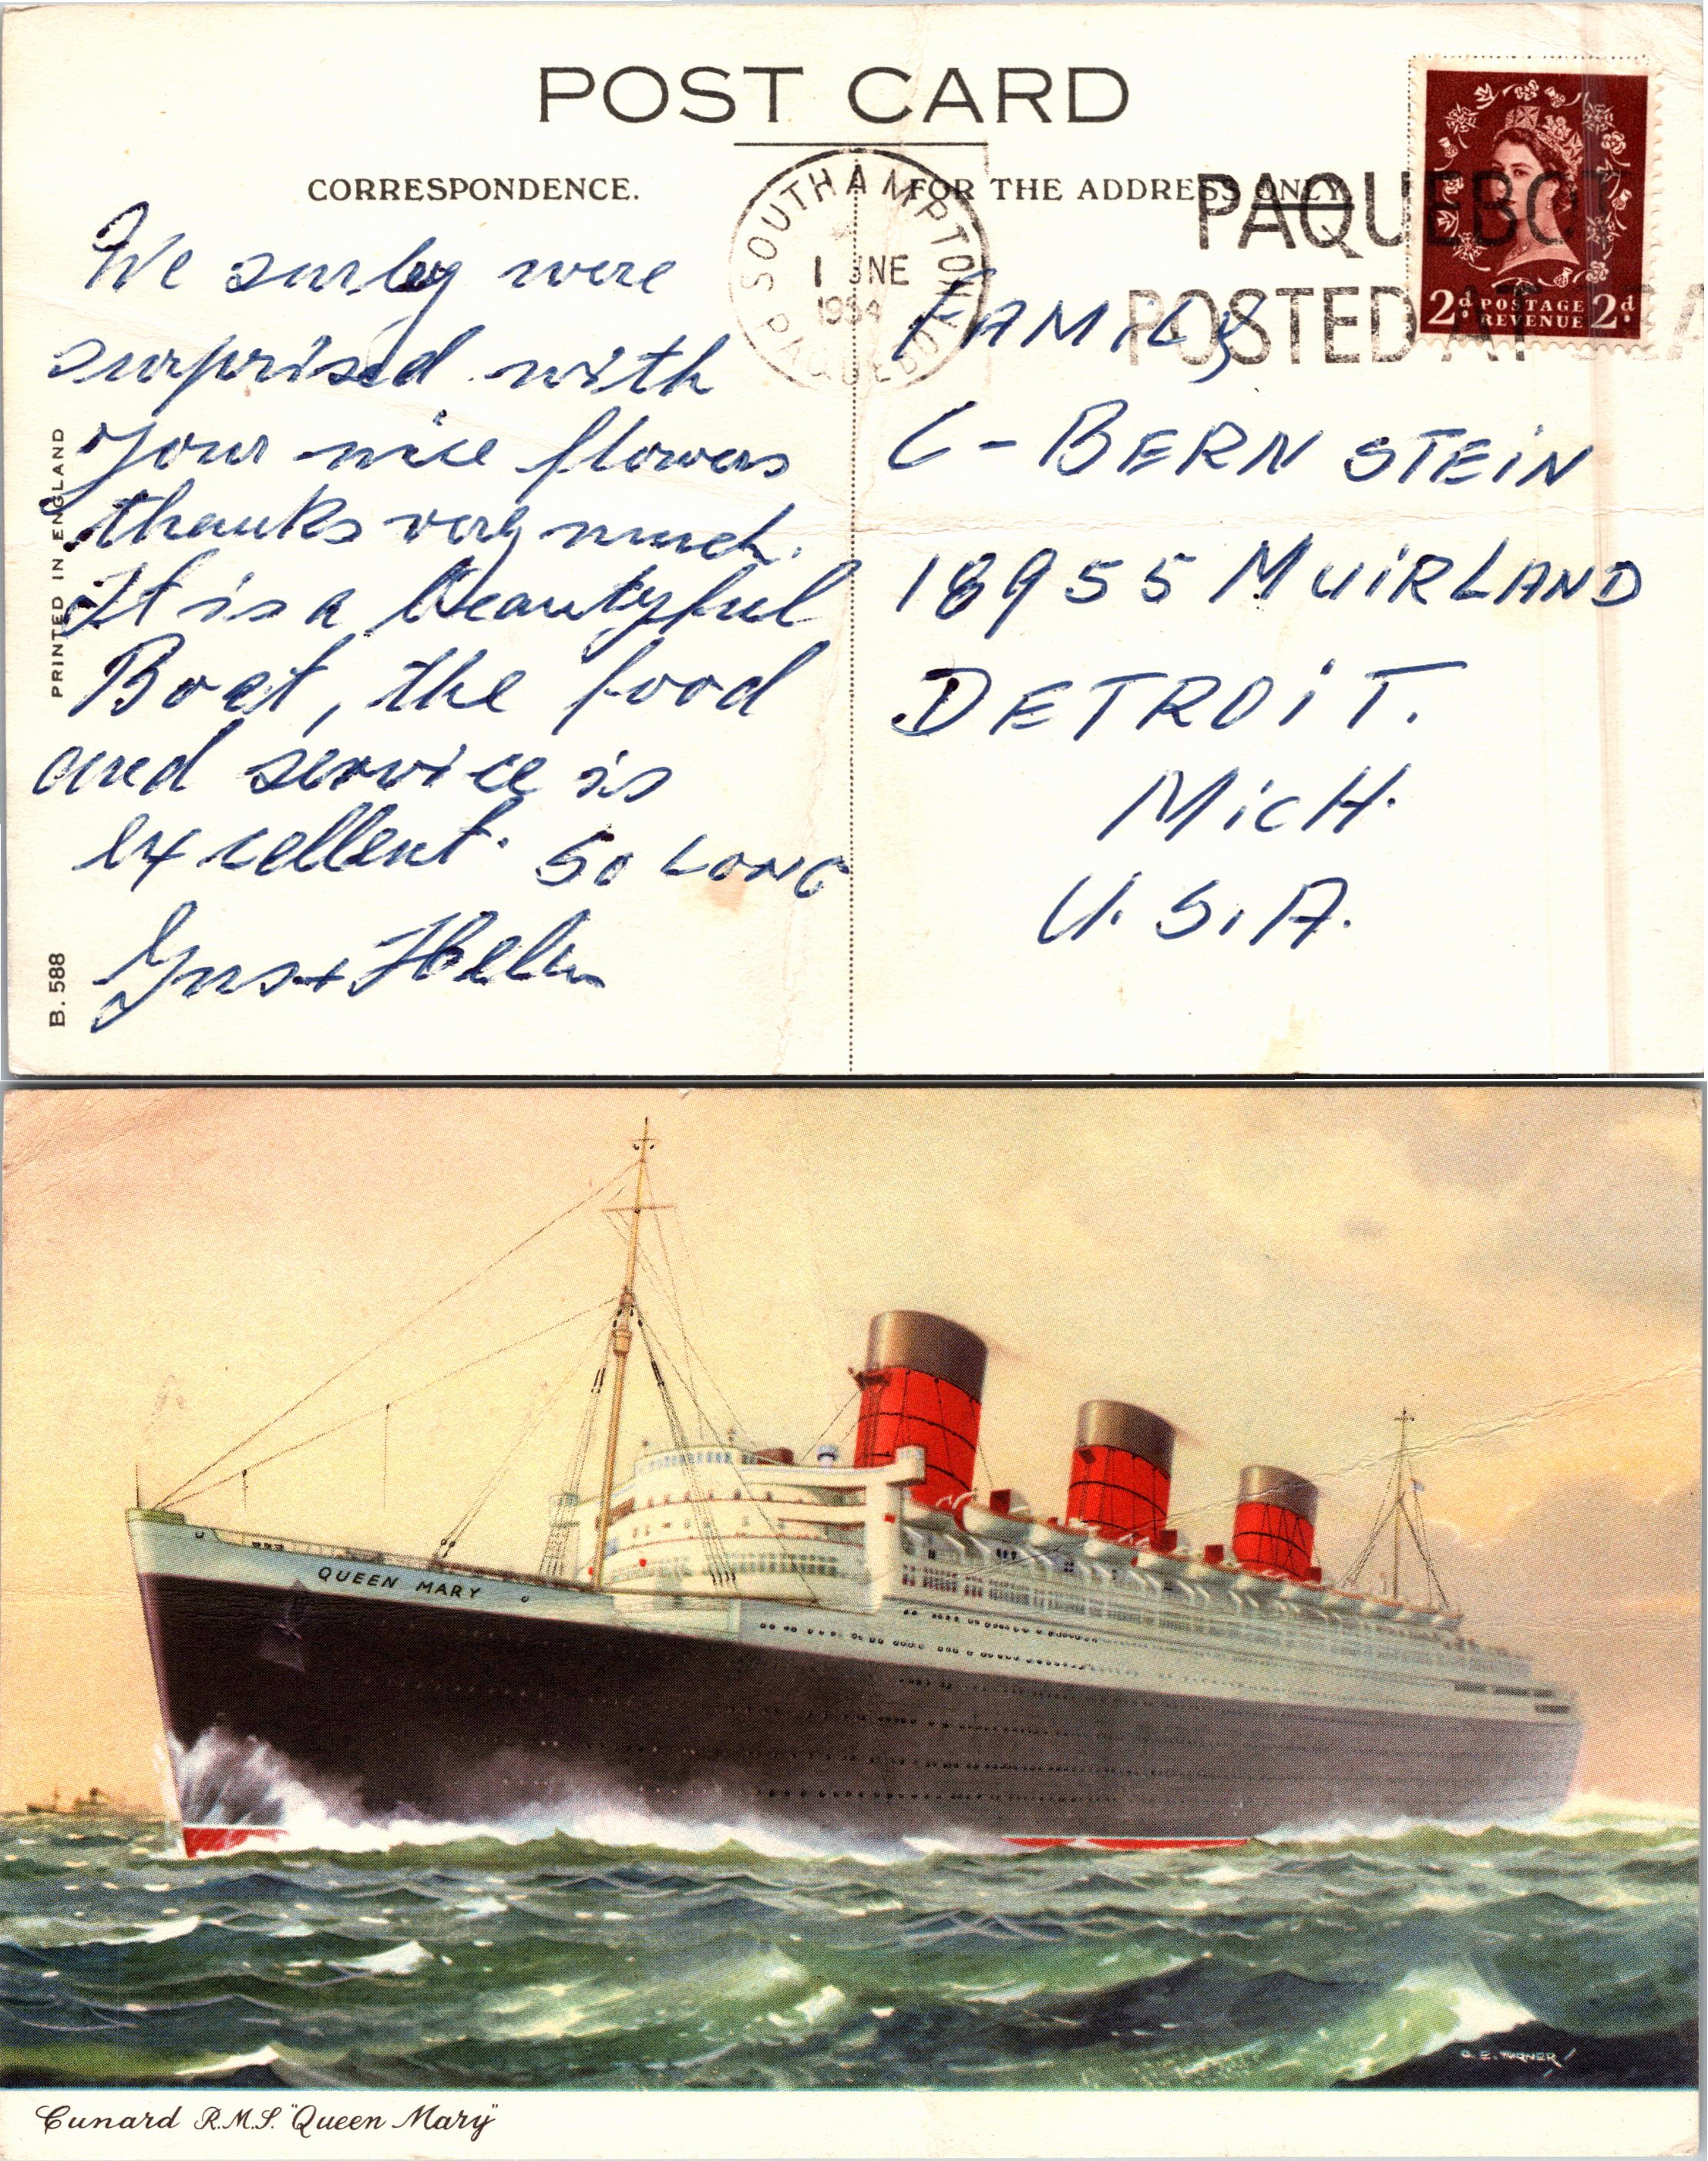 POST CARD
CORRESPONDENCE.
FOR THE ADDRESS ONLY
SOUTHAMPTON
1 JNE
1954
PAQUEBOT
PAQUEBOT
POSTED AT SEA
2d POSTAGE REVENUE 2d
We surley were
surprised with
your nice flowers
thanks very much.
It is a beautyful
Boat, the food
and service is
excellent. SO LONG
Gus + Helen
FAMILY
C - BERNSTEIN
18955 MUiRLAND
DETROiT.
MicH.
U. S. A.
PRINTED IN ENGLAND
B. 588
QUEEN MARY
C. E. TURNER
Cunard R.M.S. "Queen Mary"